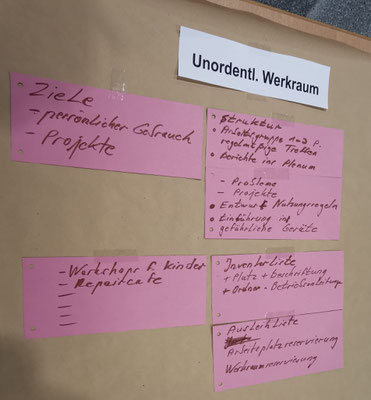 Unordentl. Werkraum
Ziele
- persönlicher Gebrauch
- Projekte
Struktur
Arbeitsgruppe 1-3 P.
regelmäßige Treffen
Berichte ins Plenum
- Probleme
- Projekte
Entwurf Nutzungsregeln
Einführung in
gefährliche Geräte
- Workshops f. Kinder
- Repaircafe
Inventarliste
+ Platz + Beschriftung
+ Ordner - Betriebsanleitungen
Ausleihliste
Arbeitsplatzreservierung
Werkraumreservierung